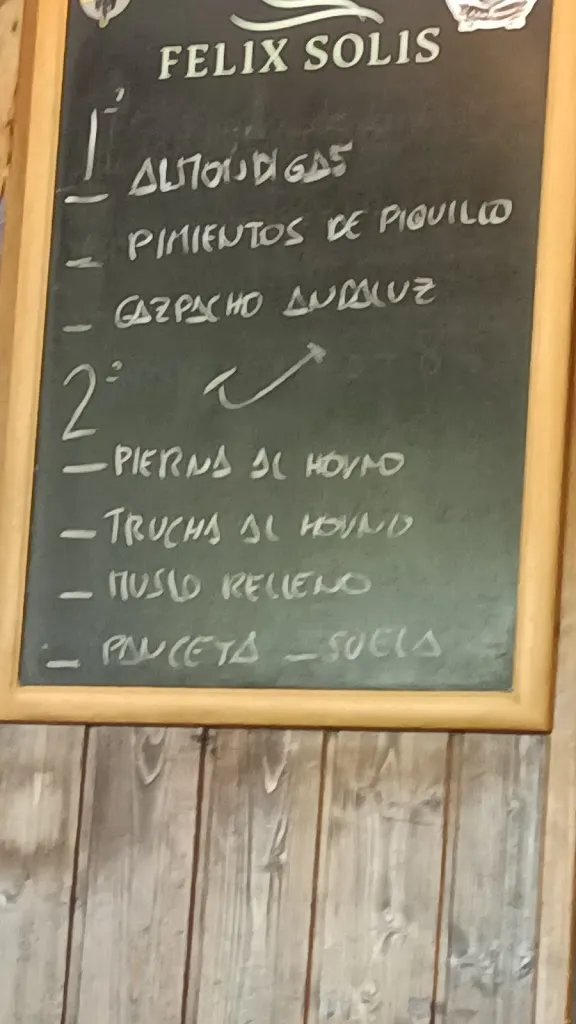 FELIX SOLIS
1º
- ALMONDIGAS
- PIMIENTOS DE PIQUILLO
- GAZPACHO ANDALUZ
2º
- PIERNA AL HORNO
- TRUCHA AL HORNO
- MUSLO RELLENO
- PANCETA - SUELA